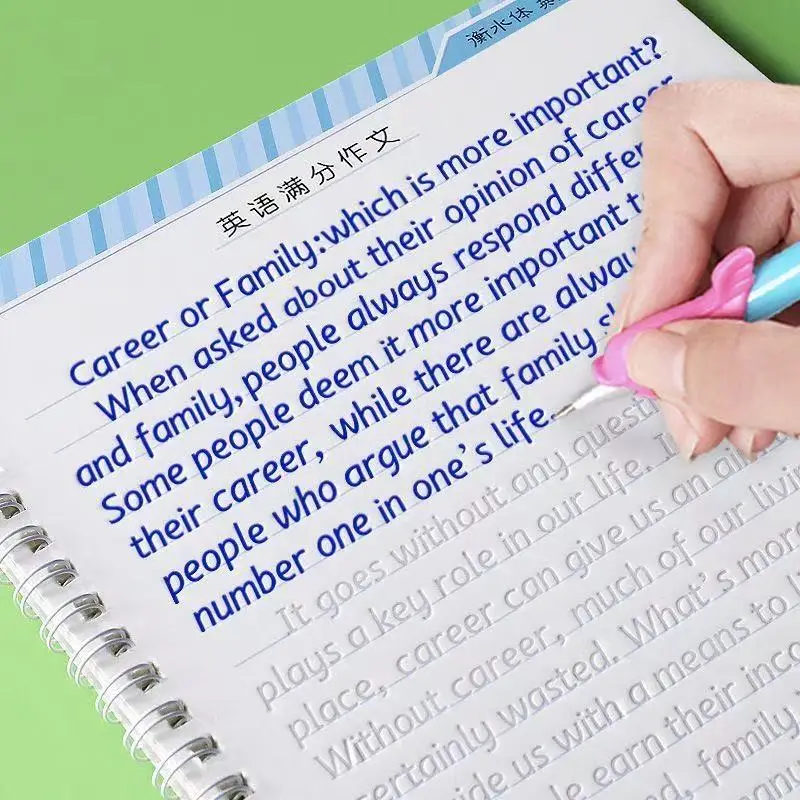 衡水体 英
英语满分作文
Career or Family:which is more important?
When asked about their opinion of career
and family, people always respond differ
Some people deem it more important t
their career, while there are alway
people who argue that family s
number one in one's life.
It goes without any questi
plays a key role in our life. I
place, career can give us an aim
Without career, much of our livin
certainly wasted. What's more
ide us with a means to l
le earn their inco
d, family